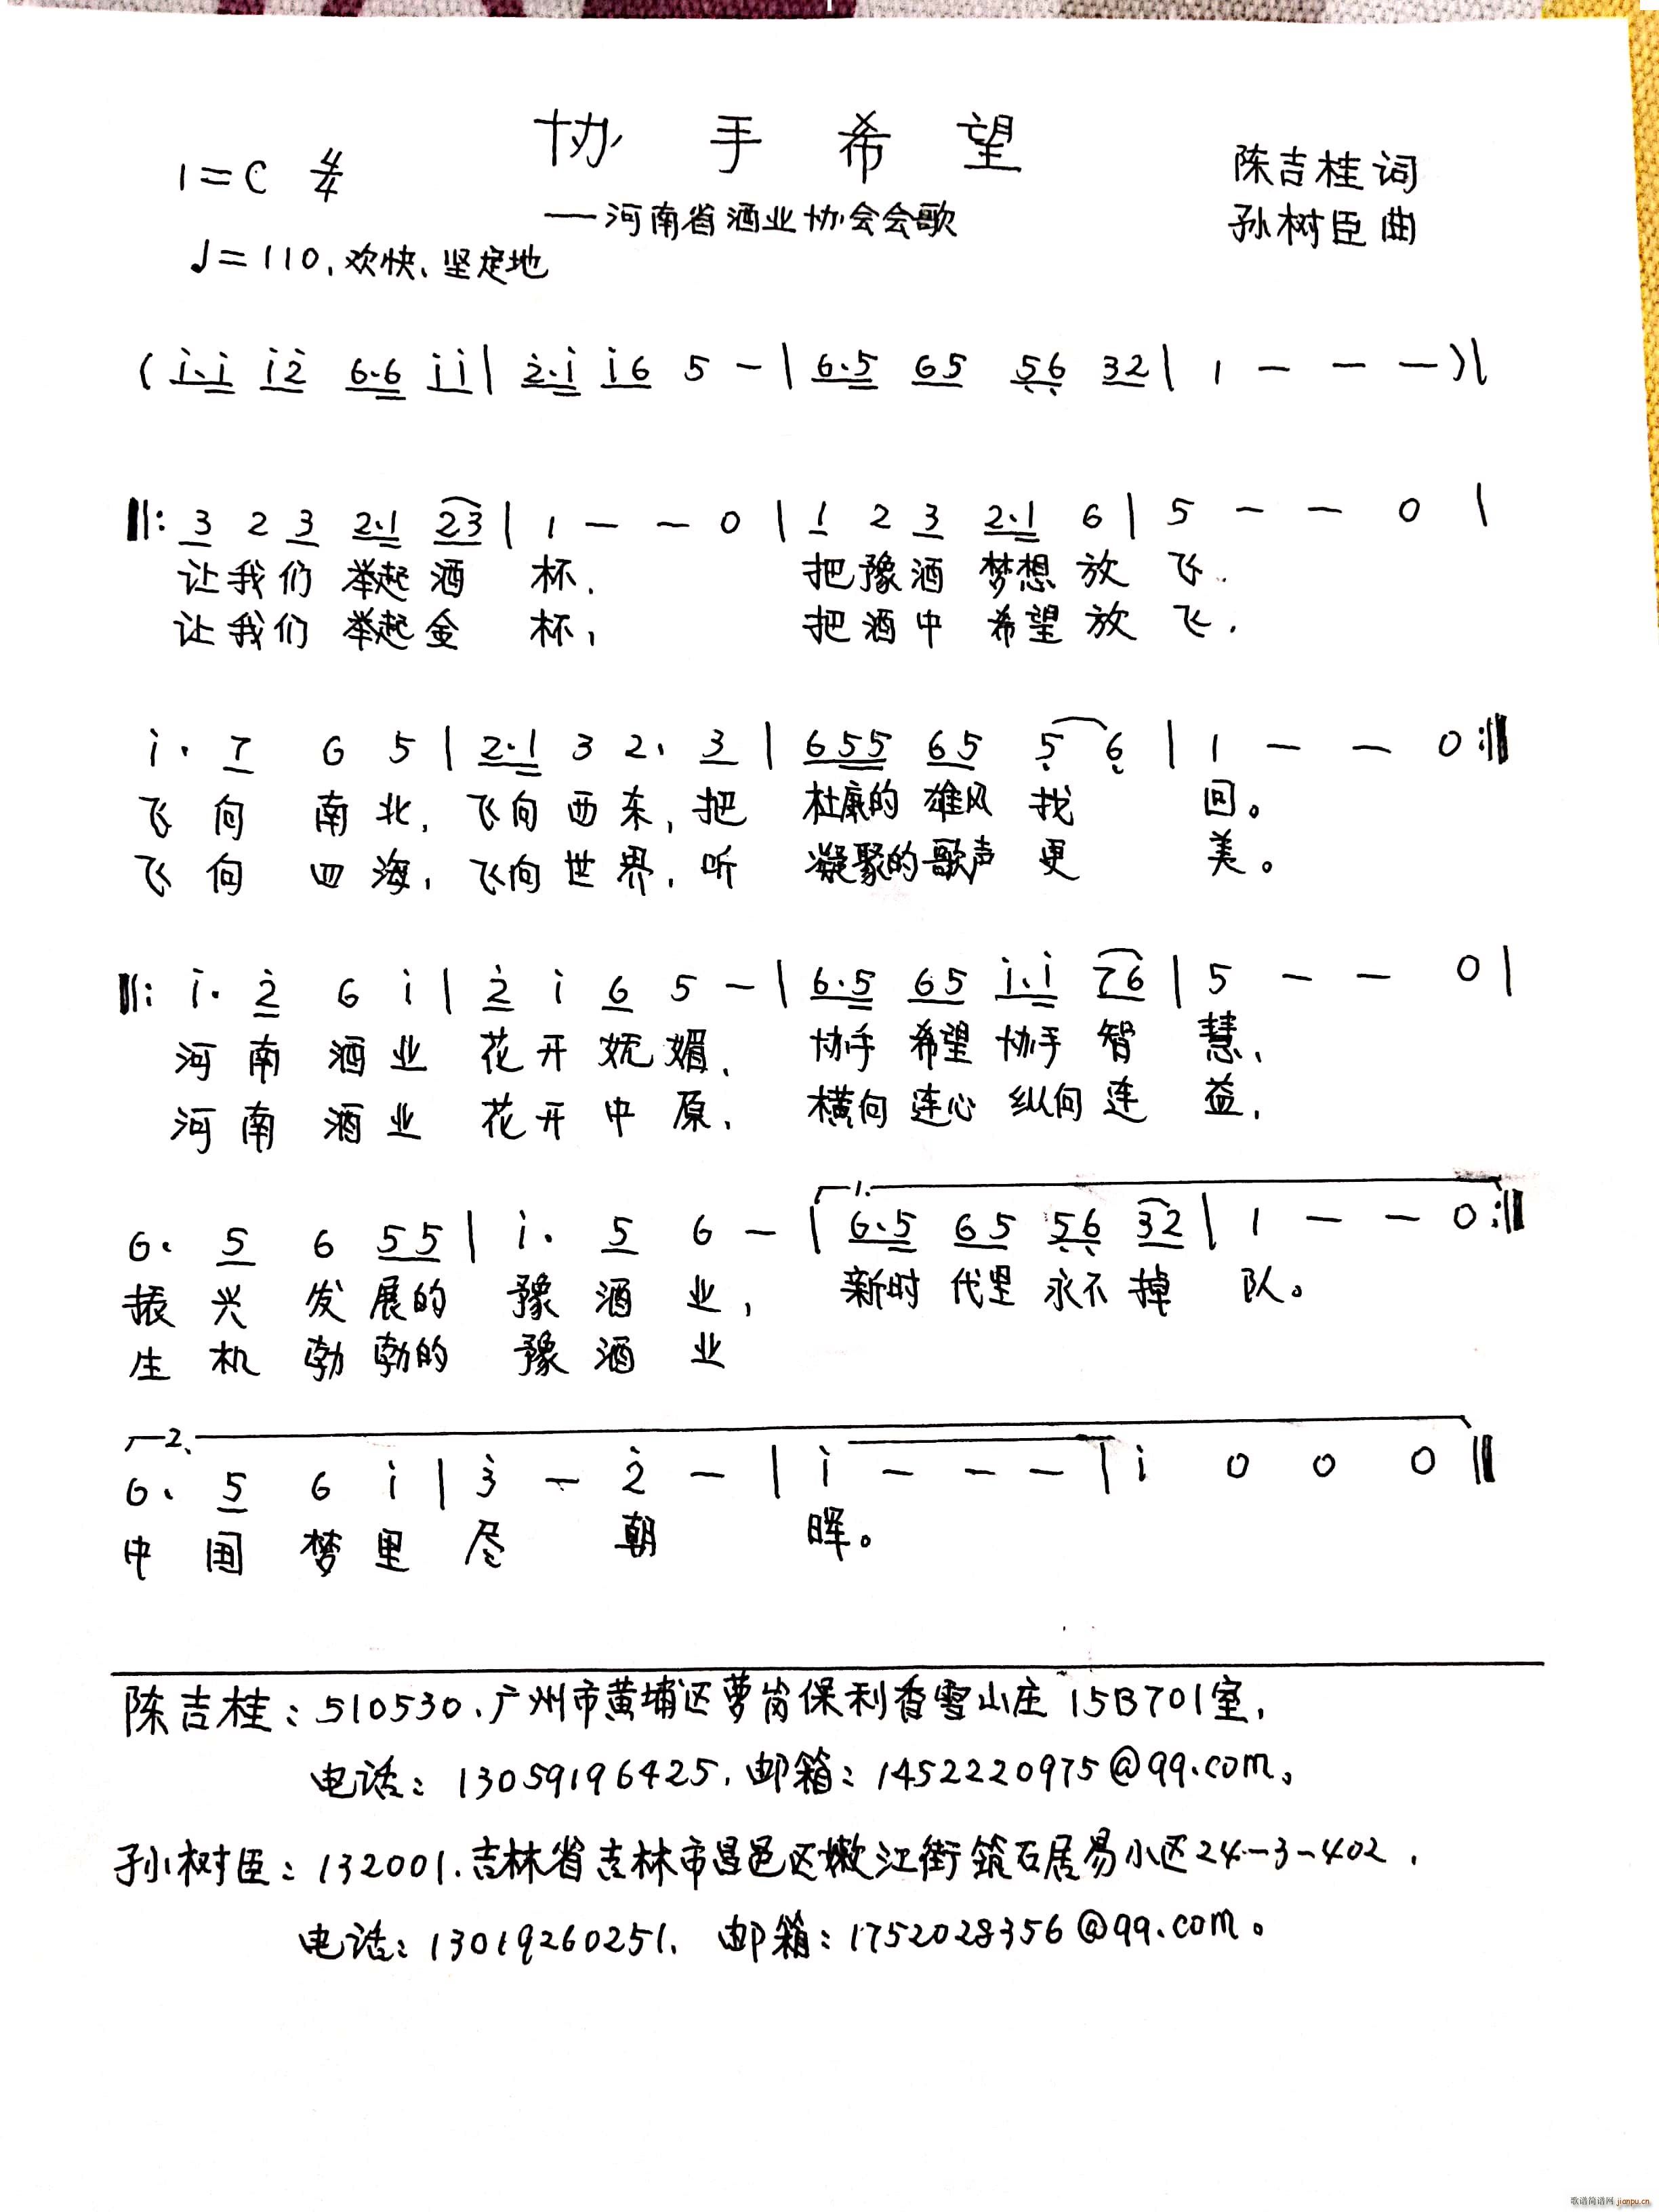 协手希望
1=C 4/4
陈吉桂 词
——河南省酒业协会会歌
孙树臣 曲
♩=110、欢快、坚定地
(i·i i2̇ 6·6 ii | 2̇·i i6 5 - | 6·5 65 5̣6̣ 32 | 1 - - - )|
‖: 3 2 3 2·1 23 | 1 - - 0 | 1 2 3 2·1 6 | 5 - - 0 |
让我们 举起酒 杯、 把豫酒 梦想 放 飞.
让我们 举起金 杯, 把酒中 希望 放 飞.
i· 7 6 5 | 2·1 3 2· 3 | 655 65 5̣ 6̣ | 1 - - 0 :‖
飞 向 南 北, 飞向 西 东, 把 杜康的 雄风 找 回。
飞 向 四 海, 飞向 世 界, 听 凝聚的 歌声 更 美。
‖: i· 2̇ 6 i | 2̇ i 6 5 - | 6·5 65 i·i 76 | 5 - - 0 |
河 南 酒 业 花 开 妩 媚、 协手 希望 协手 智 慧、
河 南 酒 业 花 开 中 原、 横向 连心 纵向 连 益,
1.
6· 5 6 55 | i· 5 6 - | 6·5 65 5̣6̣ 32 | 1 - - 0 :‖
振 兴 发 展的 豫 酒 业, 新时 代里 永不 掉 队。
生 机 勃 勃的 豫 酒 业
2.
6· 5 6 i | 3̇ - 2̇ - | i - - - | i 0 0 0 ‖
中 国 梦 里 尽 朝 晖。
陈吉桂:510530、广州市黄埔区萝岗保利香雪山庄15B701室,
电话:13059196425. 邮箱:1452220975@qq.com。
孙树臣:132001.吉林省吉林市昌邑区嫩江街筑石居易小区24-3-402.
电话:13019260251. 邮箱:1752028356@qq.com。
歌谱简谱网 jianpu.cn